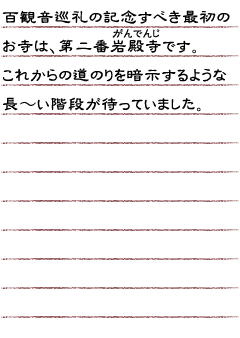 百観音巡礼の記念すべき最初の
がんでんじ
お寺は、第二番岩殿寺です。
これからの道のりを暗示するような
長～い階段が待っていました。